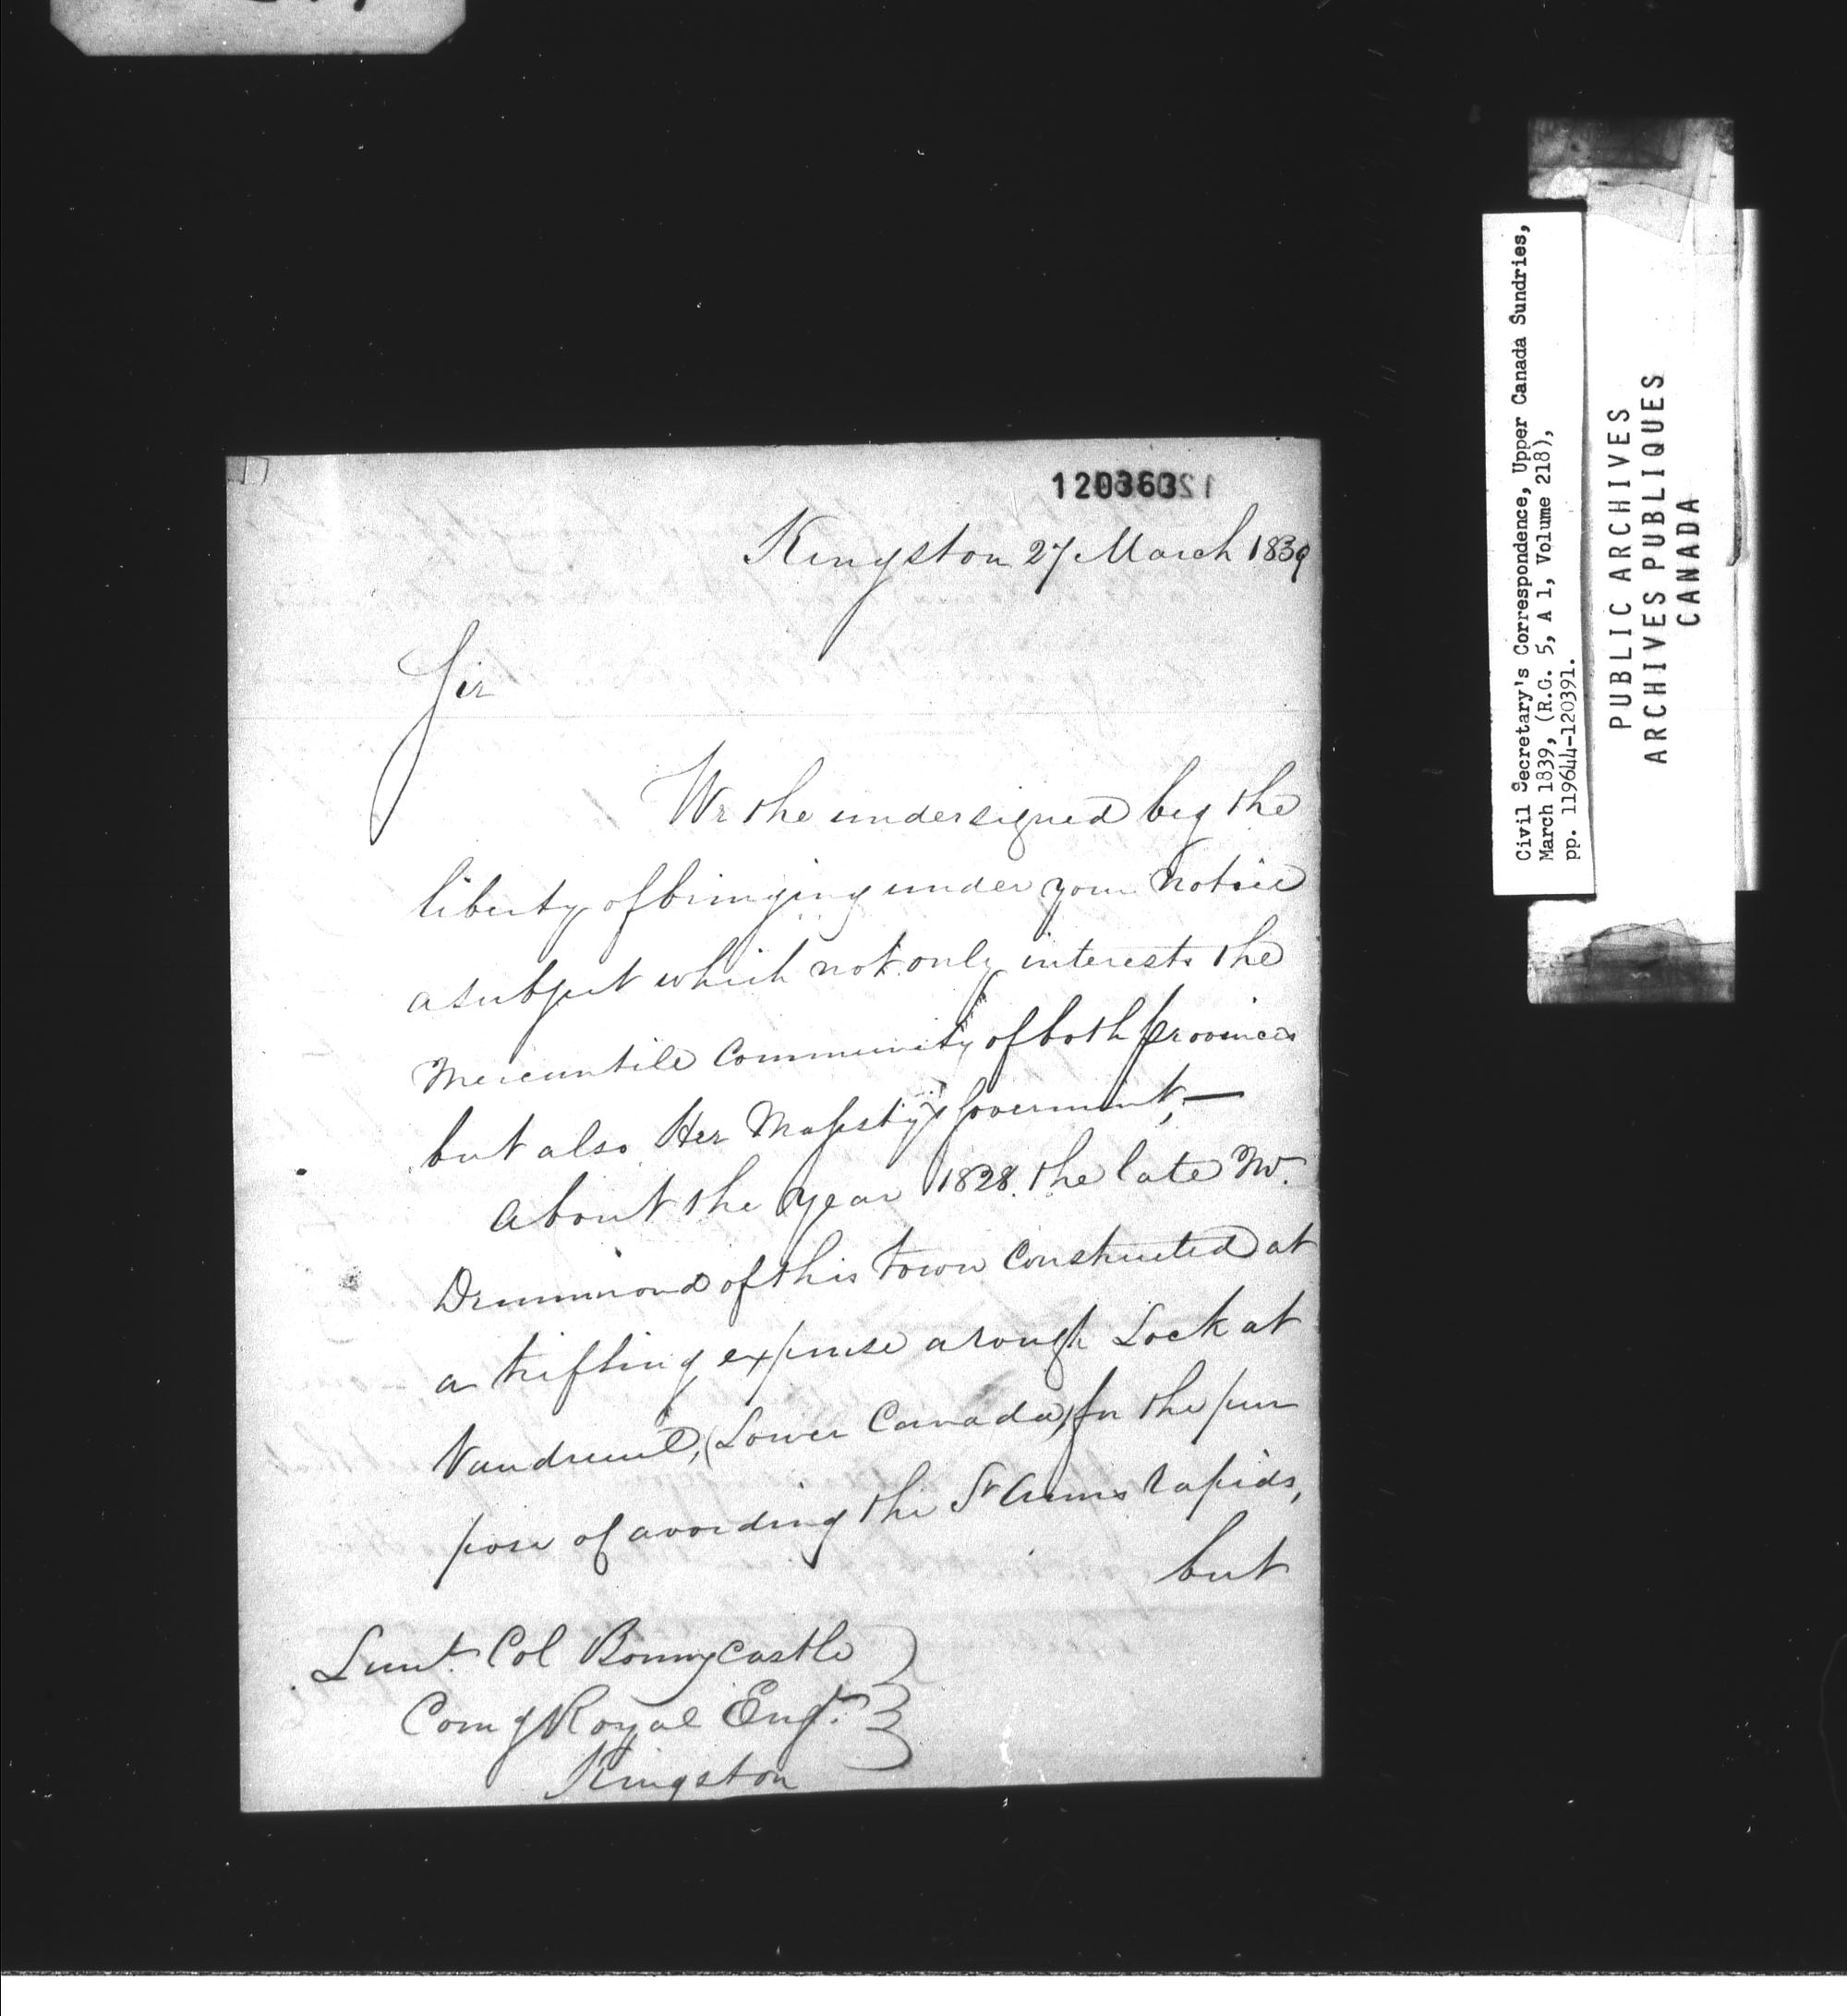 120363
Kingston 27 March 1839
Sir
We the undersigned beg the
liberty of bringing under your notice
a subject which not only interests the
Mercantile Community of both provinces
but also Her Majesty's Government,—
About the year 1828 the late Mr.
Drummond of this town Constructed at
a trifling expense a rough Lock at
Vaudreuil, (Lower Canada) for the pur
pose of avoiding the St Anns rapids,
but
Lieut. Col Bonnycastle
Comg Royal Engr.
Kingston
Civil Secretary's Correspondence, Upper Canada Sundries,
March 1839, (R.G. 5, A 1, Volume 218),
pp. 119644-120391.
PUBLIC ARCHIVES
ARCHIVES PUBLIQUES
CANADA